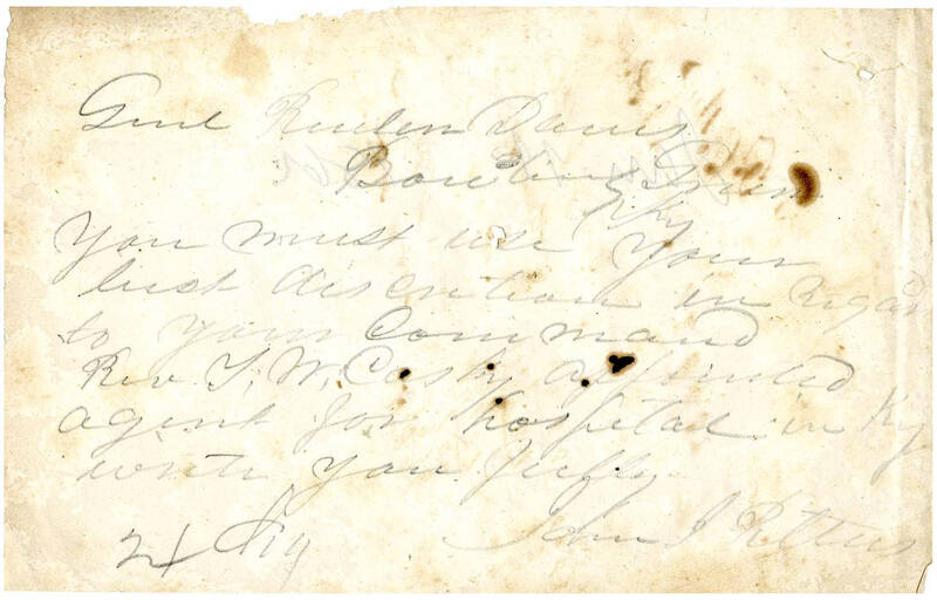 Genl Reuben Davis
Bowling Green
Ky
You must use your
best discretion in regard
to your Command
Rev. T. W. Casky appointed
agent for hospital in Ky
write you fully
John J Pettus
21